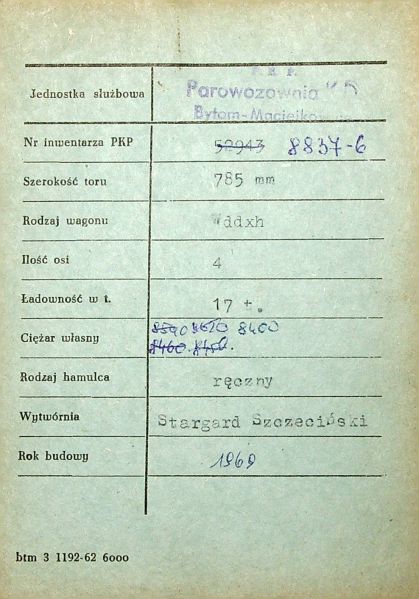 P. K. P.
Jednostka służbowa Parowozownia
Bytom-Maciejkow
Nr inwentarza PKP 52943 8837-6
Szerokość toru 785 mm
Rodzaj wagonu Wddxh
Ilość osi 4
Ładowność w t. 17 t.
8590 8620 8400
Ciężar własny 8460.
Rodzaj hamulca ręczny
Wytwórnia Stargard Szczeciński
Rok budowy 1969
btm 3 1192-62 6ooo